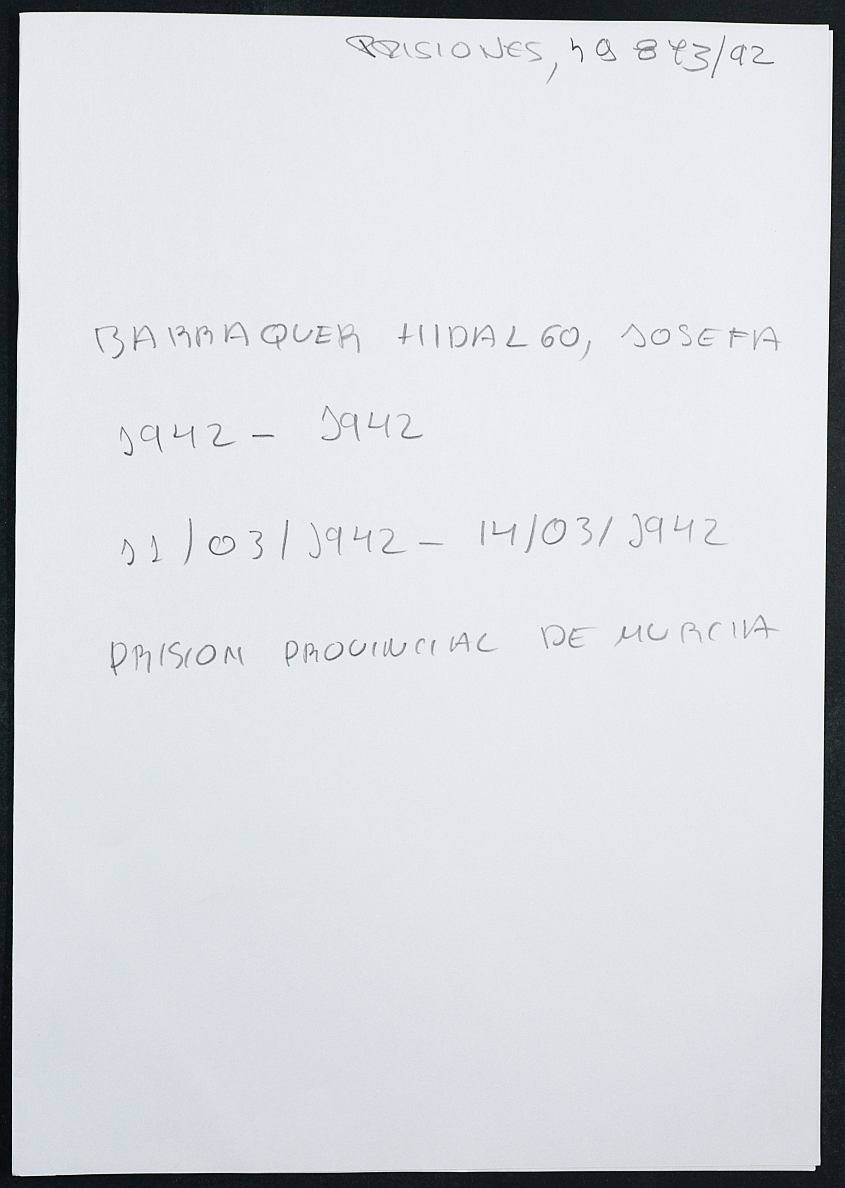 PRISIONES, 49873/92
BARRAQUER HIDALGO, JOSEFA
1942 - 1942
11/03/1942 - 14/03/1942
PRISION PROVINCIAL DE MURCIA